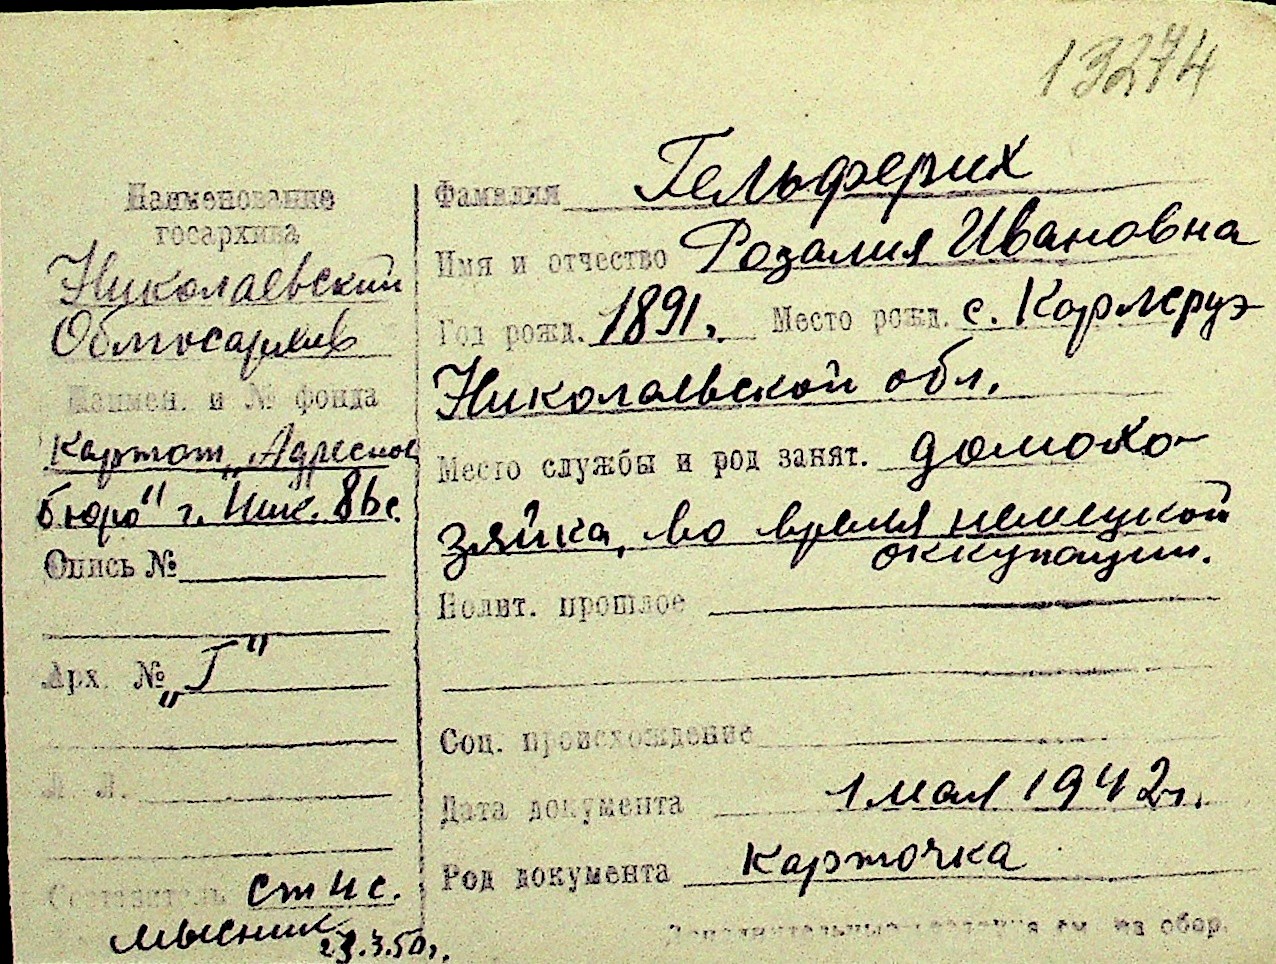 13274
Наименование
госархива
Николаевский
Облгосархив
Наимен. и № фонда
Картот. „Адресное
бюро" г. Ник.
Опись №
Арх. № „Г"
Л. Л.
Составитель ст н с.
Мысник
23.3.50г.
Фамилия Гельферих
Имя и отчество Розалия Ивановна
Год рожд. 1891. Место рожд. с. Карлсруэ
Николаевской обл.
Место службы и род занят. домохо-
зяйка, во время немецкой
оккупации.
Полит. прошлое
Соц. происхождение
Дата документа 1 мая 1942г.
Род документа карточка
Дополнительные сведения см. на обор.